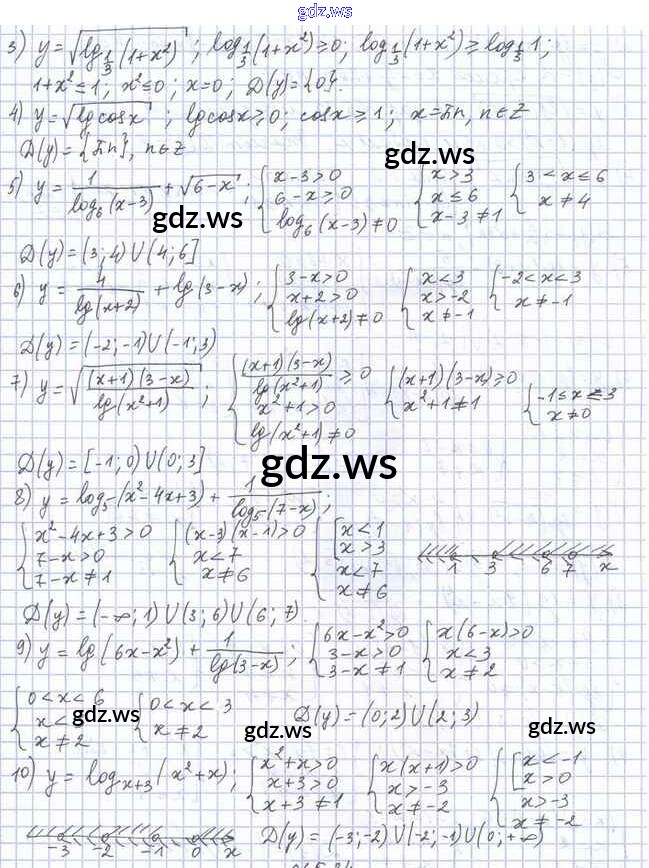 gdz.ws
3) y=√(lg_{1/3}(1+x²)); log_{1/3}(1+x²)≥0; log_{1/3}(1+x²)≥log_{1/3}1;
1+x²≤1; x²≤0; x=0; D(y)={0}.
4) y=√(lg cosx); lg cosx≥0; cosx≥1; x=2πn, n∈Z
gdz.ws
D(y)={2πn}, n∈Z
5) y=1/(log₆(x-3))+√(6-x); {x-3>0 6-x≥0 log₆(x-3)≠0 {x>3 x≤6 x-3≠1 {3<x≤6 x≠4
gdz.ws
gdz.ws
D(y)=(3;4)∪(4;6]
6) y=4/(lg(x+2))+lg(3-x); {3-x>0 x+2>0 lg(x+2)≠0 {x<3 x>-2 x≠-1 {-2<x<3 x≠-1
D(y)=(-2;-1)∪(-1;3)
7) y=√((x+1)(3-x)/lg(x²+1)); {(x+1)(3-x)/lg(x²+1)≥0 x²+1>0 lg(x²+1)≠0 {(x+1)(3-x)≥0 x²+1≠1 {-1≤x≤3 x≠0
D(y)=[-1;0)∪(0;3]
gdz.ws
8) y=log₅(x²-4x+3)+1/(log₅(7-x));
{x²-4x+3>0 7-x>0 7-x≠1 {(x-3)(x-1)>0 x<7 x≠6 {[x<1 x>3 x<7 x≠6 1 3 6 7 x
D(y)=(-∞;1)∪(3;6)∪(6;7)
9) y=lg(6x-x²)+1/(lg(3-x)); {6x-x²>0 3-x>0 3-x≠1 {x(6-x)>0 x<3 x≠2
{0<x<6 x<3 x≠2 {0<x<3 x≠2 D(y)=(0;2)∪(2;3)
gdz.ws
gdz.ws
gdz.ws
10) y=log_{x+3}(x²+x); {x²+x>0 x+3>0 x+3≠1 {x(x+1)>0 x>-3 x≠-2 {[x<-1 x>0 x>-3 x≠-2
-3 -2 -1 0 x D(y)=(-3;-2)∪(-2;-1)∪(0;+∞)
gdz.ws